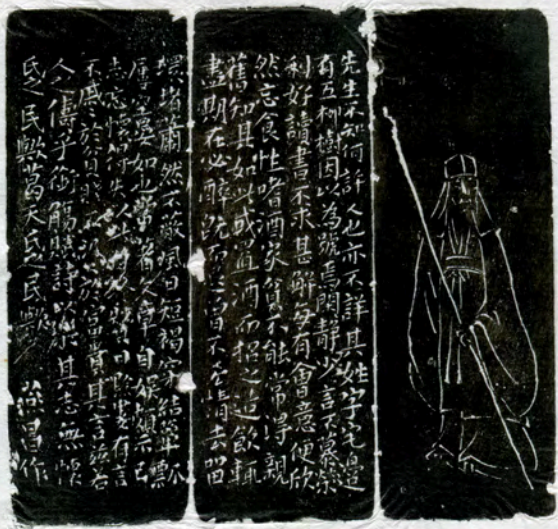 先生不知何許人也亦不詳其姓字宅邊
有五柳樹因以為號焉閑靜少言不慕榮
利好讀書不求甚解每有會意便欣
然忘食性嗜酒家貧不能常得親
舊知其如此或置酒而招之造飲輒
盡期在必醉既而退曾不吝情去留
環堵蕭然不蔽風日短褐穿結簞瓢
屢空晏如也嘗著文章自娛頗示己
志忘懷得失以此自終贊曰黔婁有言
不戚〻於貧賤不汲〻於富貴其言茲若
人之儔乎銜觴賦詩以樂其志無懷
氏之民歟葛天氏之民歟 徐昌作